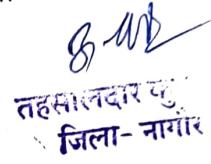 तहसीलदार कु
जिला- नागौर